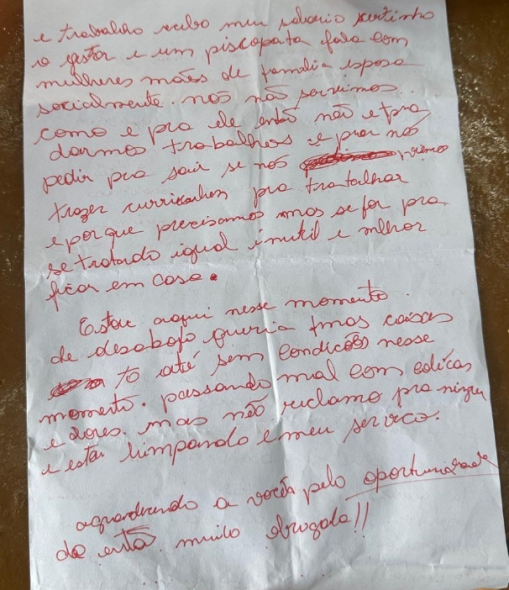 e trabalho recebo meu salario certinho
o gestor e um piscopata fala com
mulheres mães de familia esposa
socialmente. nos não servimos
como e pra ele então não e pra
darmos trabalhos e pra nos
pedir pra sair se nos
trazer curriculum pra trabalhar
e porque precisamos mas se for pra
se tratado igual inutil e melhor
ficar em casa.
Estou aqui nesse momento
de desabafo queria mas coisas
to até sem condições nesse
momento. passando mal com colicas
e dores. mas não reclamo pra
e estar limpando e meu serviço.
agradecendo a vocês pelo oportunidade
de muito obrigada!!